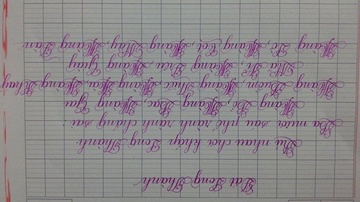 Long Thành
Rủ nhau chơi khắp Long Thành
Ba mươi sáu phố rành rành chẳng sai:
Hàng Bồ, Hàng Bạc, Hàng Gai
Hàng Buồm, Hàng Thiếc, Hàng Hài, Hàng Khay
Mã Vĩ, Hàng Điếu, Hàng Giày
Hàng Lờ, Hàng Cót, Hàng Mây, Hàng Đàn